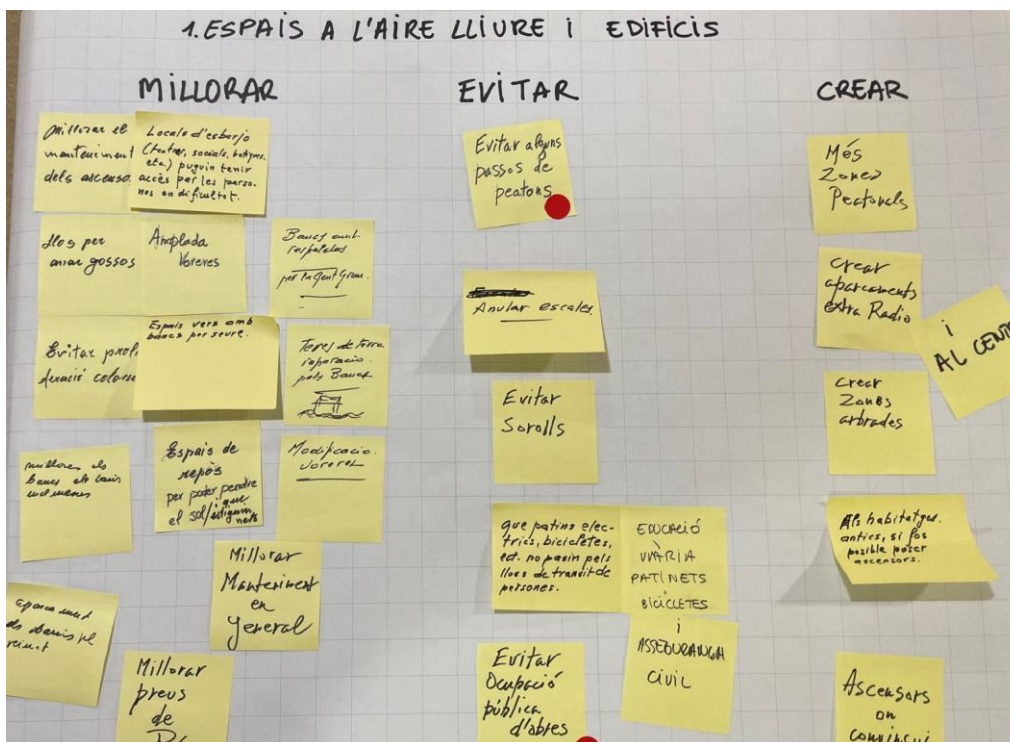 1. ESPAIS A L'AIRE LLIURE I EDIFICIS
MILLORAR
Millorar el
manteniment
dels ascenso
Locals d'esbarjo
(teatres, socials, botigues,
etc.) puguin tenir
accès per les perso-
nes en dificultat.
llos per
anar gossos
Amplada
Voreres
Bancs amb
respatales
per la Gent Gran.
Evitar proli
feració coloms
Espais vers amb
bancs per seure.
de terra
reparacio
Bancs
millorar els
bancs els
Espais de
repòs
per poder pendre
el sol i que
estiguin
nets
Modificacio
voreres
Millorar
Manteniment
en
general
aparcament
Millorar
preus
de
EVITAR
Evitar alguns
passos de
peatons
Anular escales.
Evitar
Sorolls
que patins elec-
trics, bicicletes,
ect. no pasin pels
llocs de transit de
persones.
EDUCACIÓ
VIÀRIA
PATINETS
BICICLETES
i
ASSEGURANÇA
CIVIL
Evitar
Ocupació
pública
d'obres
CREAR
Més
Zones
Peatonals
Crear
aparcaments
extra Radio
i
AL CENT
Crear
Zones
arbrades
Als habitatges
antics, si fos
posible poser
ascensors.
Ascensors
on
convingui